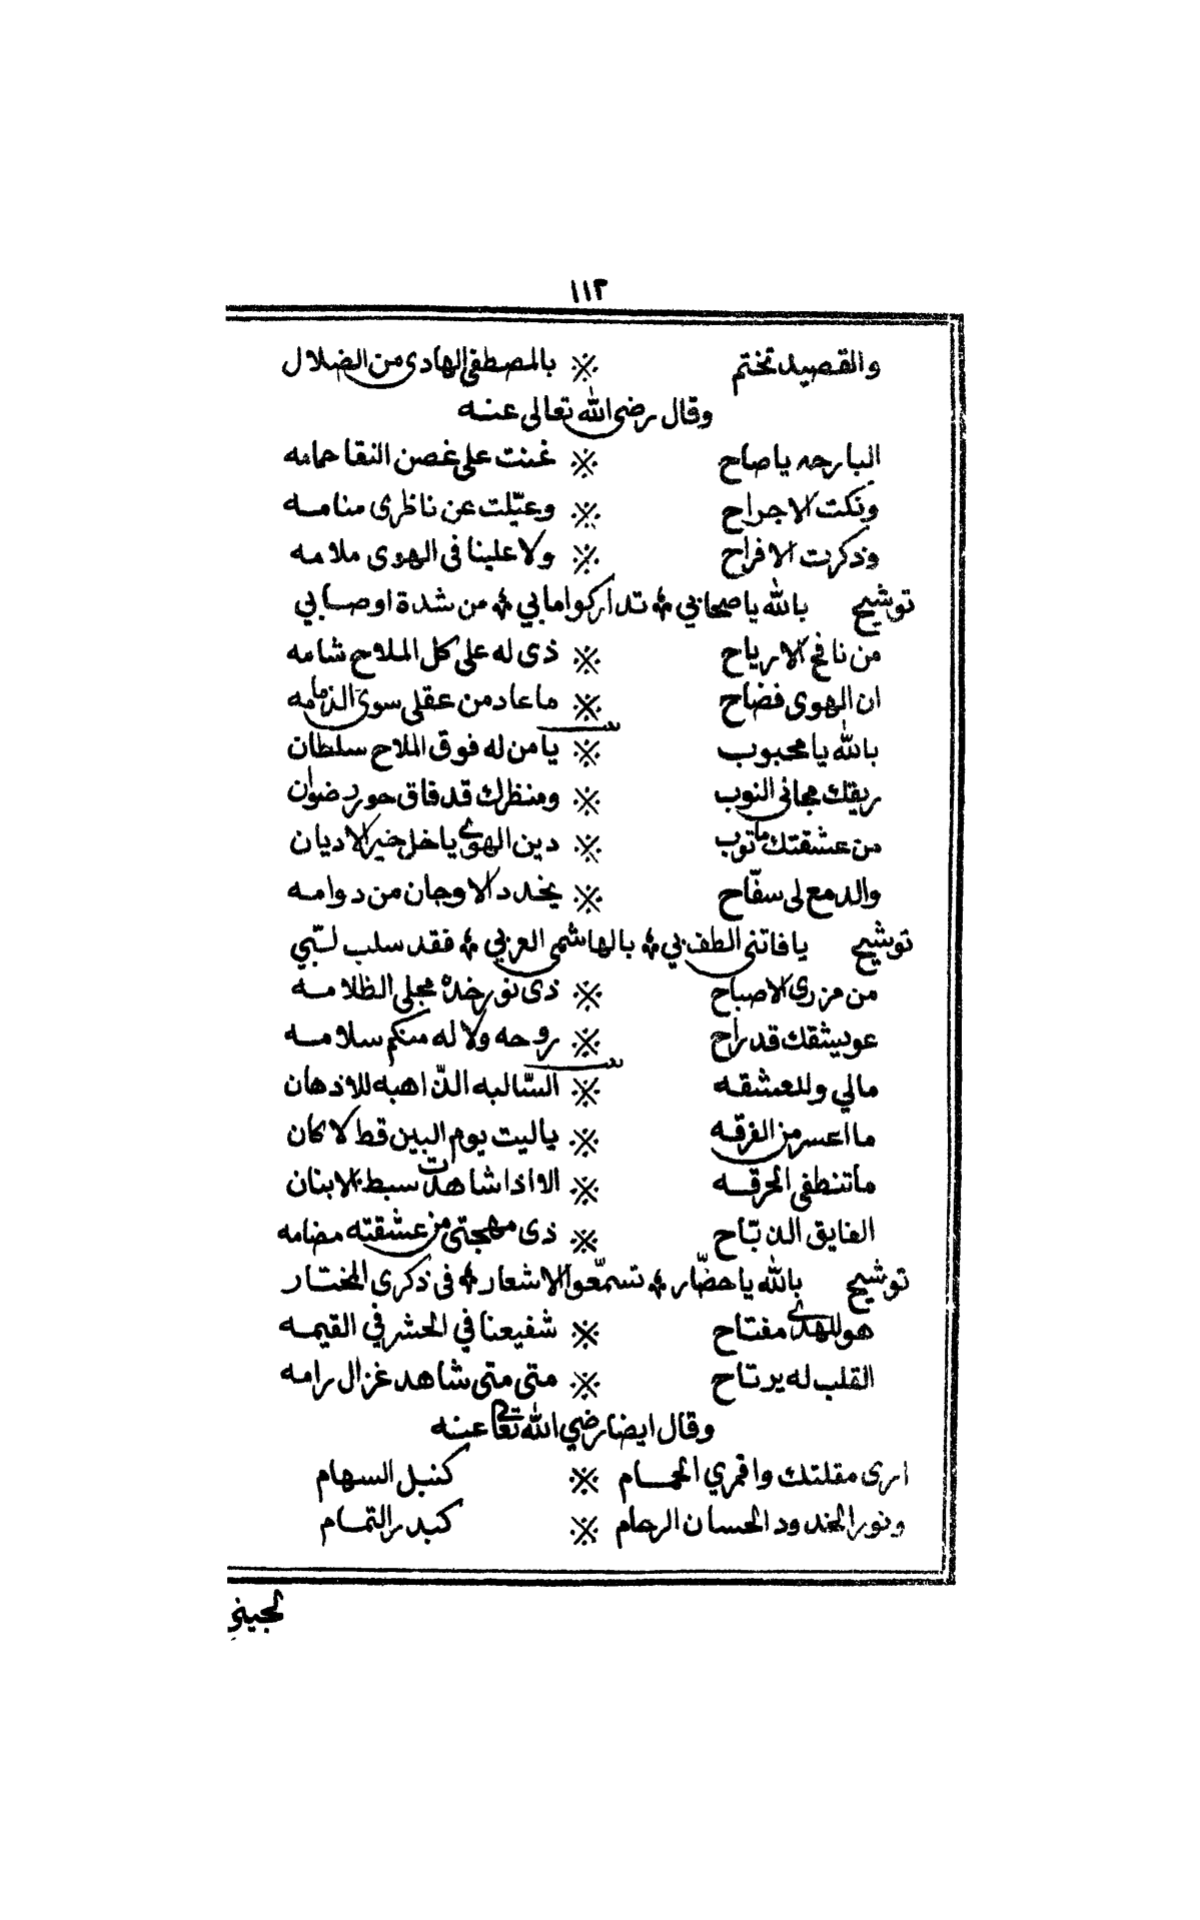 ١١٢
والقصيد تختم ※ بالمصطفى الهادى من الضلال
وقال رضى الله تعالى عنه
البارحه ياصاح ※ غنت على غصن النقا حمامه
ونكت الاجراح ※ وعيّلت عن ناظرى منامه
وذكرت الافراح ※ ولا علينا فى الهوى ملامه
توشيح بالله ياصحابي ؞ تداركوا مابي ؞ من شدة اوصابي
من نافح الارياح ※ ذى له على كل الملاح شامه
ان الهوى فضاح ※ ماعاد من عقلى سوى الذمامه
بالله يامحبوب ※ يا من له فوق الملاح سلطان
ريقك مجانى النوب ※ ومنظرك قد فاق حور رضوان
من عشقتك ماتوب ※ دين الهوى ياخل خير الاديان
والدمع لى سفّاح ※ يخدد الاوجان من دوامه
توشيح يافاتنى الطف بي ؞ بالهاشمى العربي ؞ فقد سلب لبّي
من مزرى الاصباح ※ ذى نور خده مجلى الظلامه
عويشقك قد راح ※ روحه ولا له منكم سلامه
مالي وللعشقه ※ السّالبه الذّاهبه للاذهان
ما اعسر من الفرقه ※ ياليت يوم البين قط لا كان
ماتنطفى الحرقه ※ الا اذا شاهدت سبط الابنان
الفايق الدبّاح ※ ذى مهجتى من عشقته مضامه
توشيح بالله ياحضّار ؞ تسمّعوا الاشعار ؞ فى ذكرى المختار
هو للهدى مفتاح ※ شفيعنا في الحشر في القيمه
القلب له يرتاح ※ متى متى شاهد غزال رامه
وقال ايضا رضي الله تعالى عنه
ارى مقلتك واقمري الحمام ※ كنبل السهام
ونور الخدود الحسان الرحام ※ كبدر التمام
لجينى